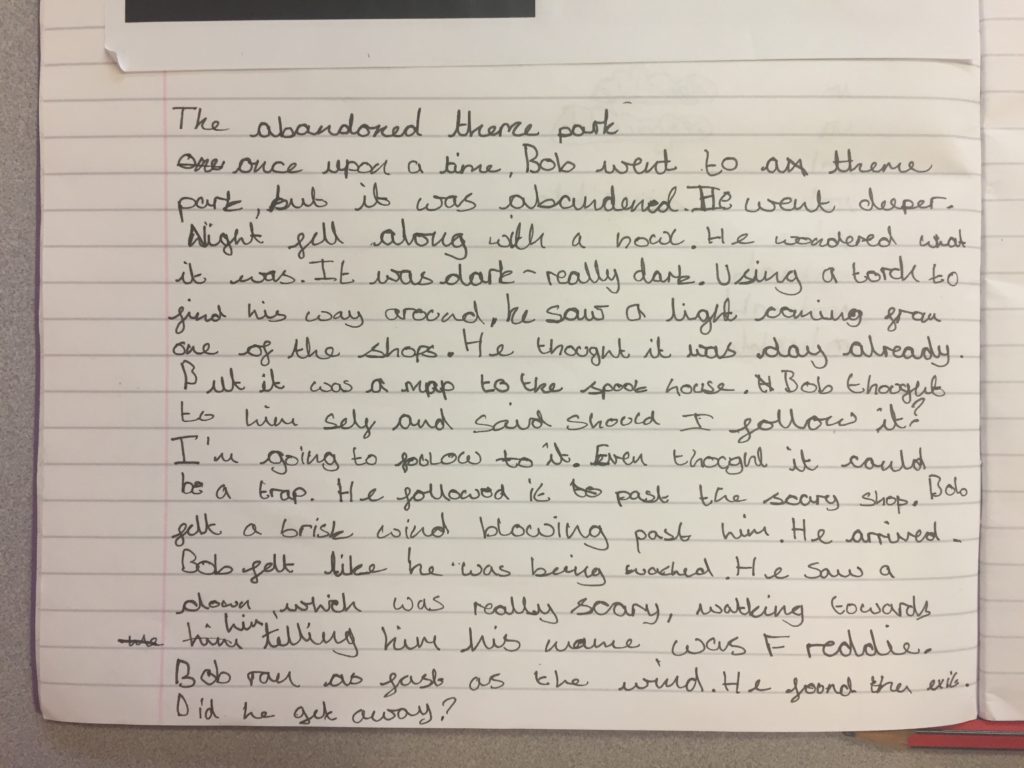 The abandoned theme park
once upon a time, Bob went to a theme
park, but it was abandened. He went deeper.
Night fell along with a howl. He wondered what
it was. It was dark - really dark. Using a torch to
find his way around, he saw a light coming from
one of the shops. He thought it was day already.
But it was a map to the spook house. Bob thought
to him self and said should I follow it?
I'm going to folow it. Even thooght it could
be a trap. He followed it past the scary shop. Bob
felt a brisk wind blowing past him. He arrived.
Bob felt like he was being wached. He saw a
clown, which was really scary, walking towards
him, telling him his name was Freddie.
Bob ran as fast as the wind. He foond the exit.
Did he get away?